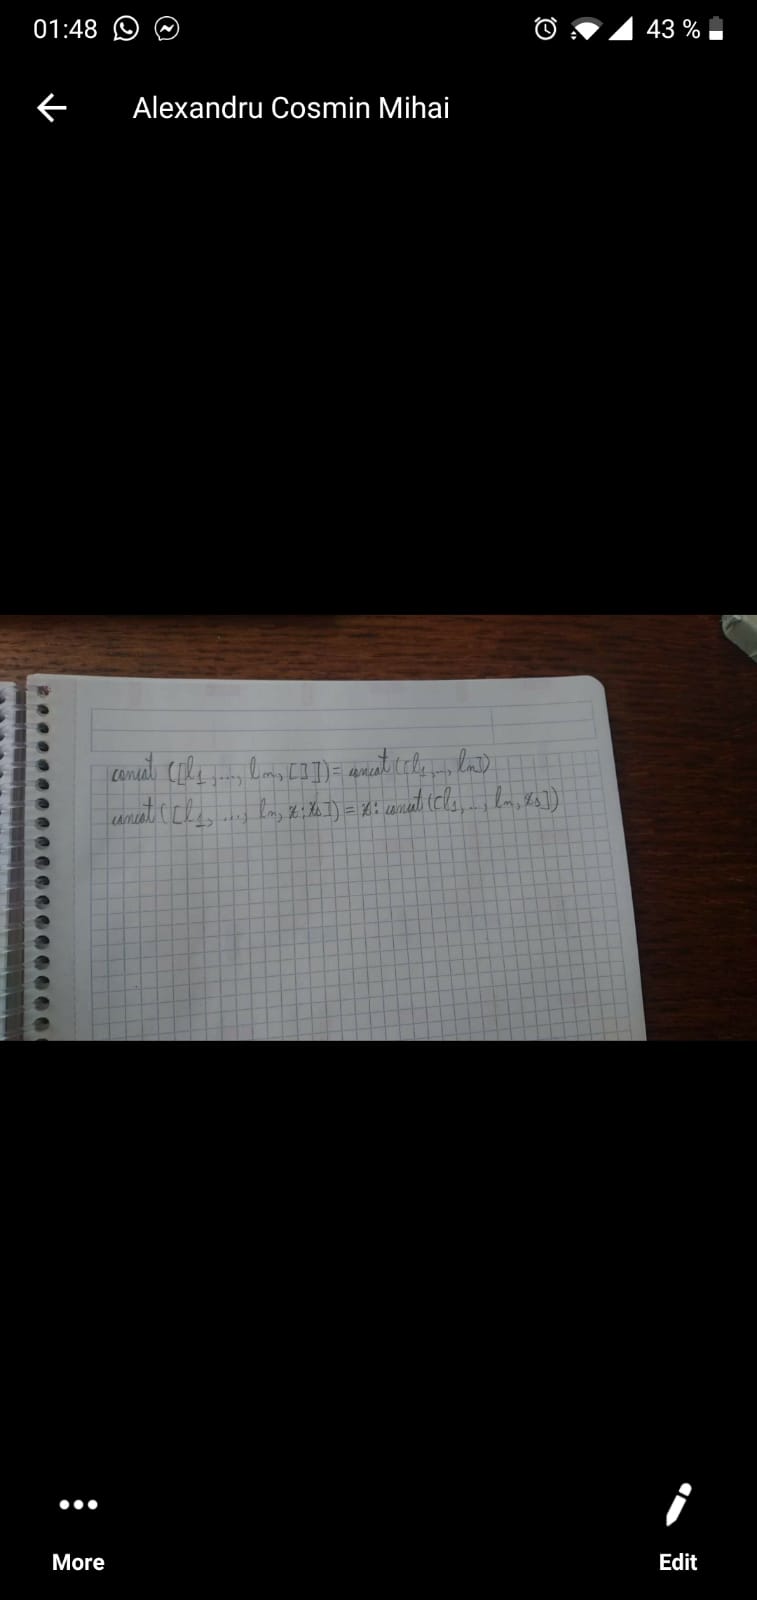 01:48 43 %
Alexandru Cosmin Mihai
concat ([l1, ..., ln, []]) = concat ([l1, ..., ln])
concat ([l1, ..., ln, x:xs]) = x: concat ([l1, ..., ln, xs])
More Edit